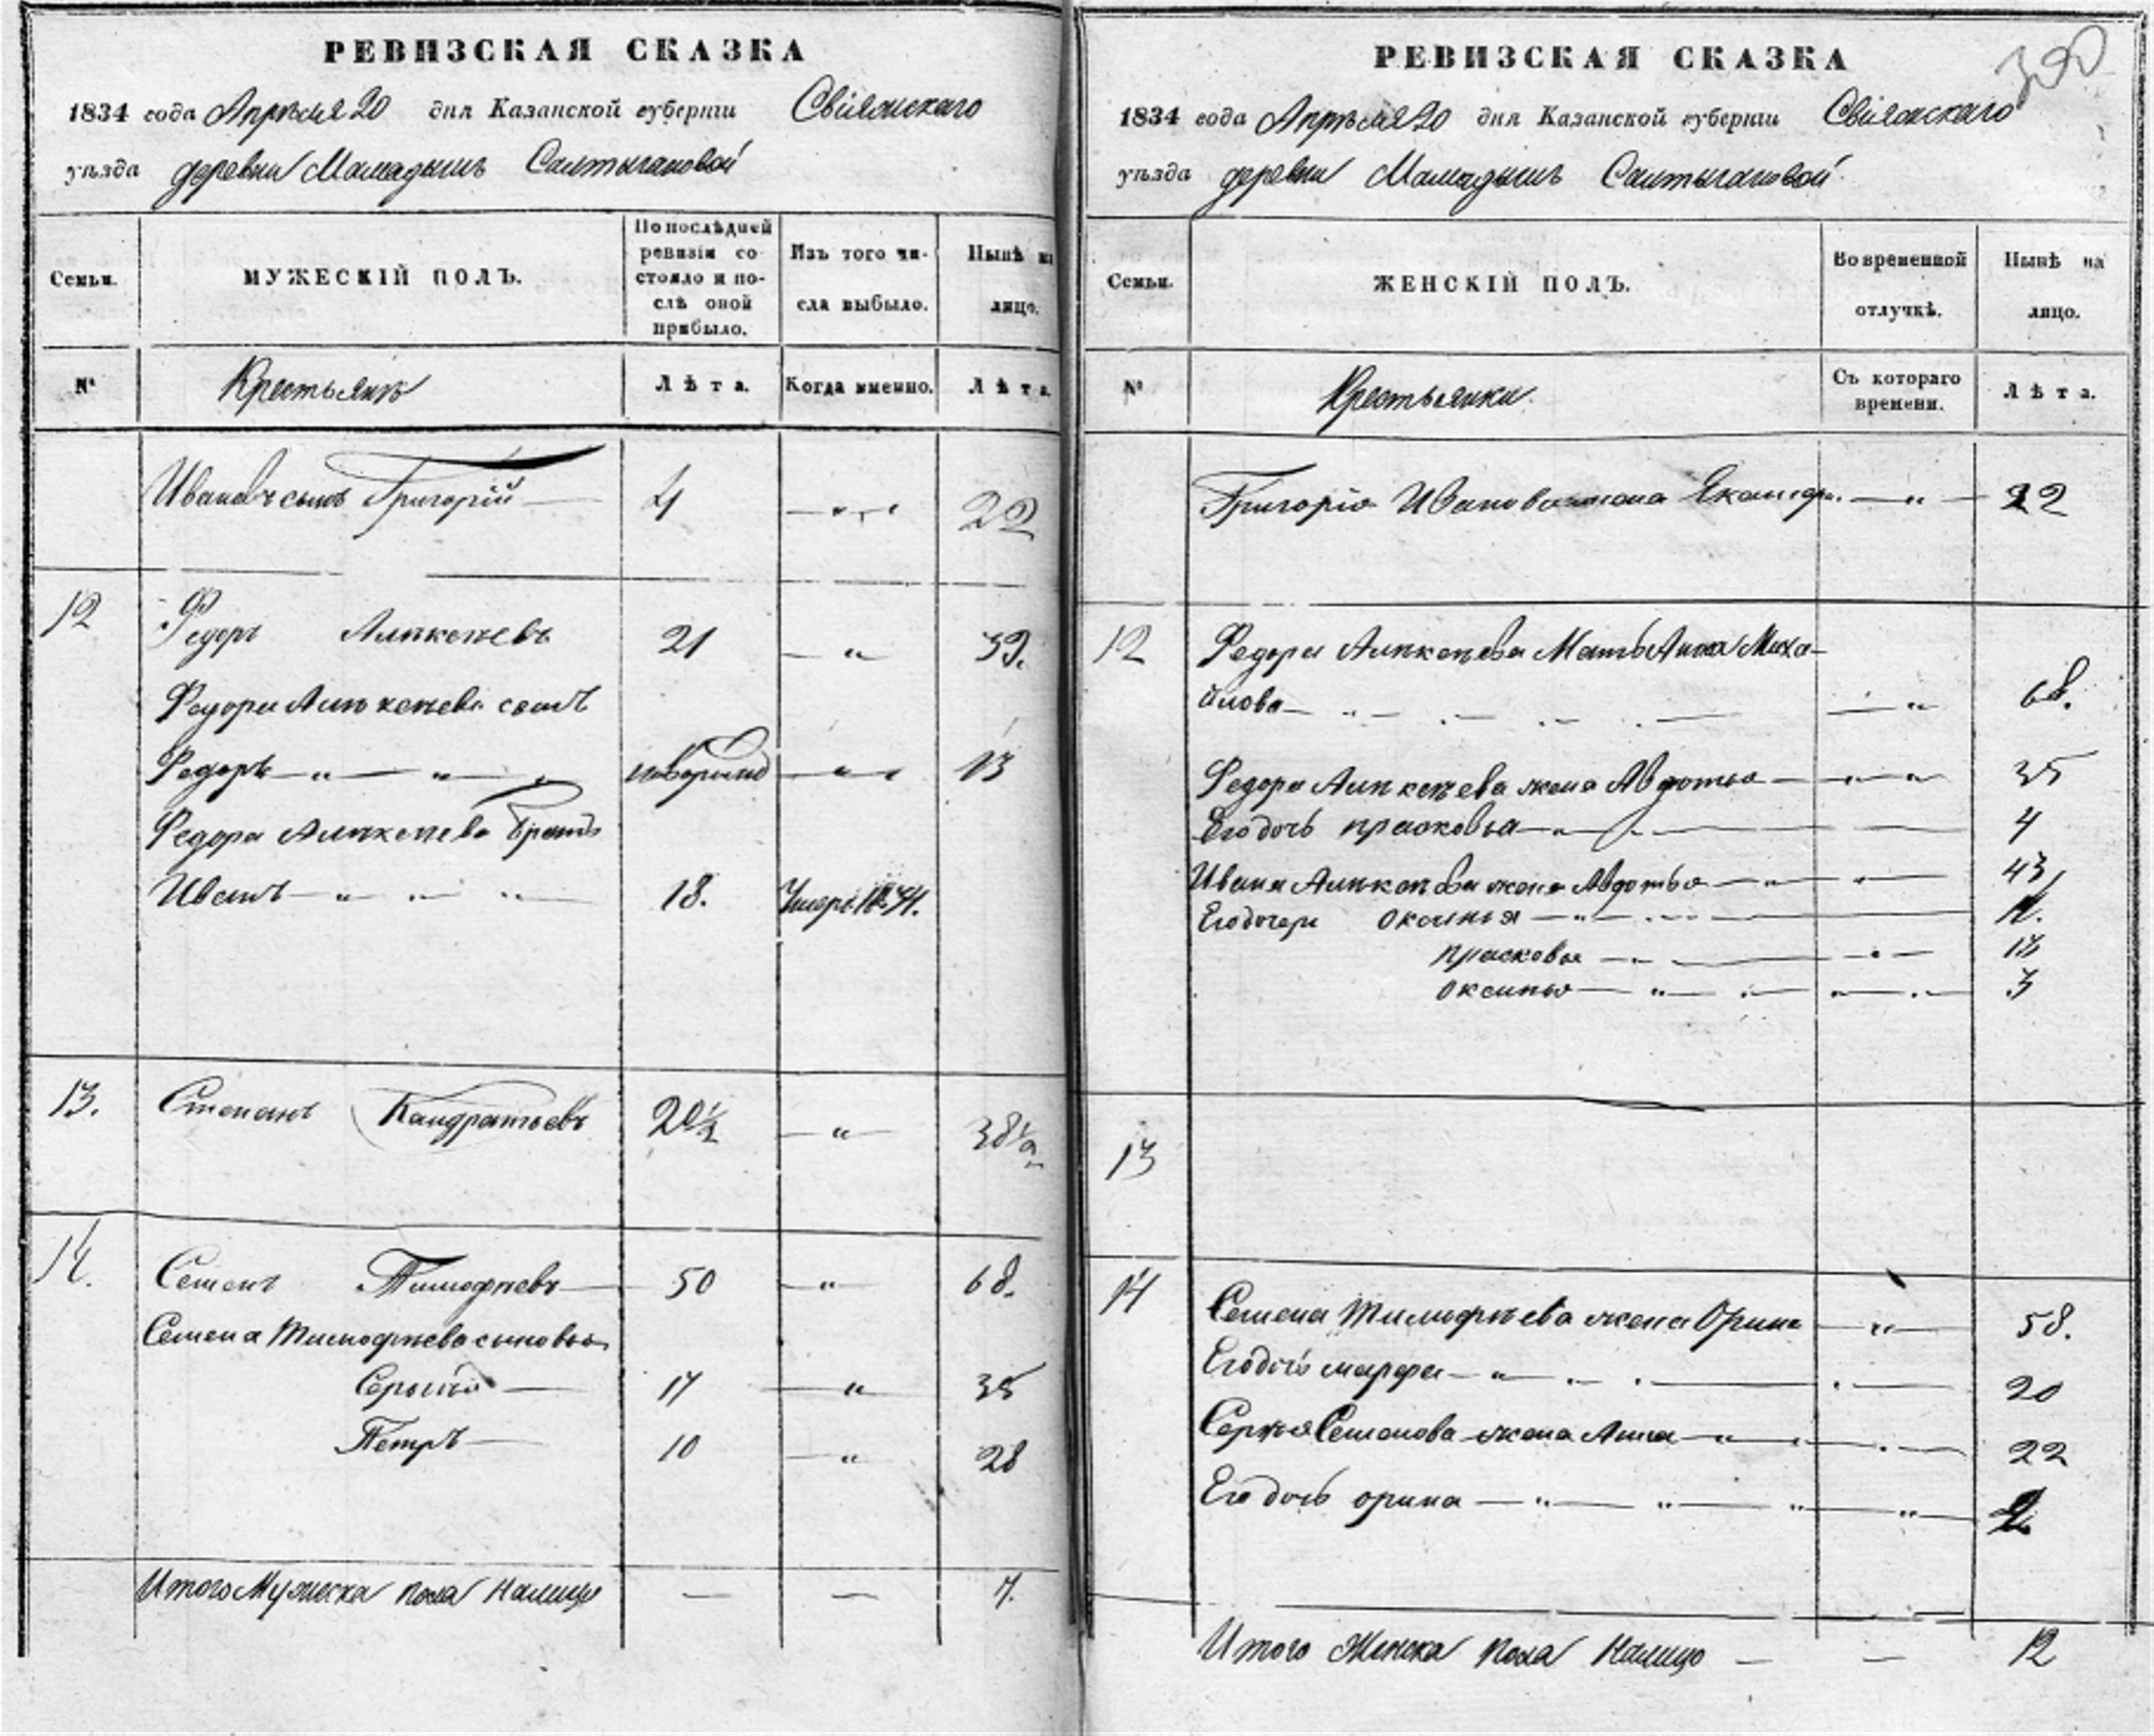 РЕВИЗСКАЯ СКАЗКА
1834 года Апреля 20 дня Казанской губернiи Свiяжскаго
уѣзда деревни Мамадышъ Салтыгановой
Семьи.
МУЖЕСКIЙ ПОЛЪ.
По послѣдней ревизiи состояло и послѣ оной прибыло.
Изъ того числа выбыло.
Нынѣ на лицо.
№
Крестьянъ
Лѣта.
Когда именно.
Лѣта.
Ивановъ сынъ Григорiй 4 22
12 Федоръ 21 39.
Федора сынъ
Федоръ новорожд 13
Федора братъ
Иванъ 18. Умеръ
13. Степанъ Кандратьевъ 20½ 38½
14. Семенъ Тимофѣевъ 50 68.
Семена Тимофѣева сыновья
Сергѣй 17 35
Петръ 10 28
Итого Мужеска пола налицо — — 7.
РЕВИЗСКАЯ СКАЗКА
1834 года Апреля 20 дня Казанской губернiи Свiяжскаго
уѣзда деревни Мамадышъ Салтыгановой
Семьи.
ЖЕНСКIЙ ПОЛЪ.
Во временной отлучкѣ.
Нынѣ на лицо.
№
Крестьянки
Съ котораго времени.
Лѣта.
Григорiя Иванова жена 22
12 Федора Мать Анна Миха-
йлова 68.
Федора жена Авдотья 35
Его дочь прасковья 4
Ивана жена Авдотья 43
Его дочери оксинья
прасковья
оксинья 3
13
14 Семена Тимофѣева жена Орина 58.
Его дочь марфа 20
Сергѣя Семенова жена Анна 22
Его дочь орина
Итого Женска пола налицо — — 12